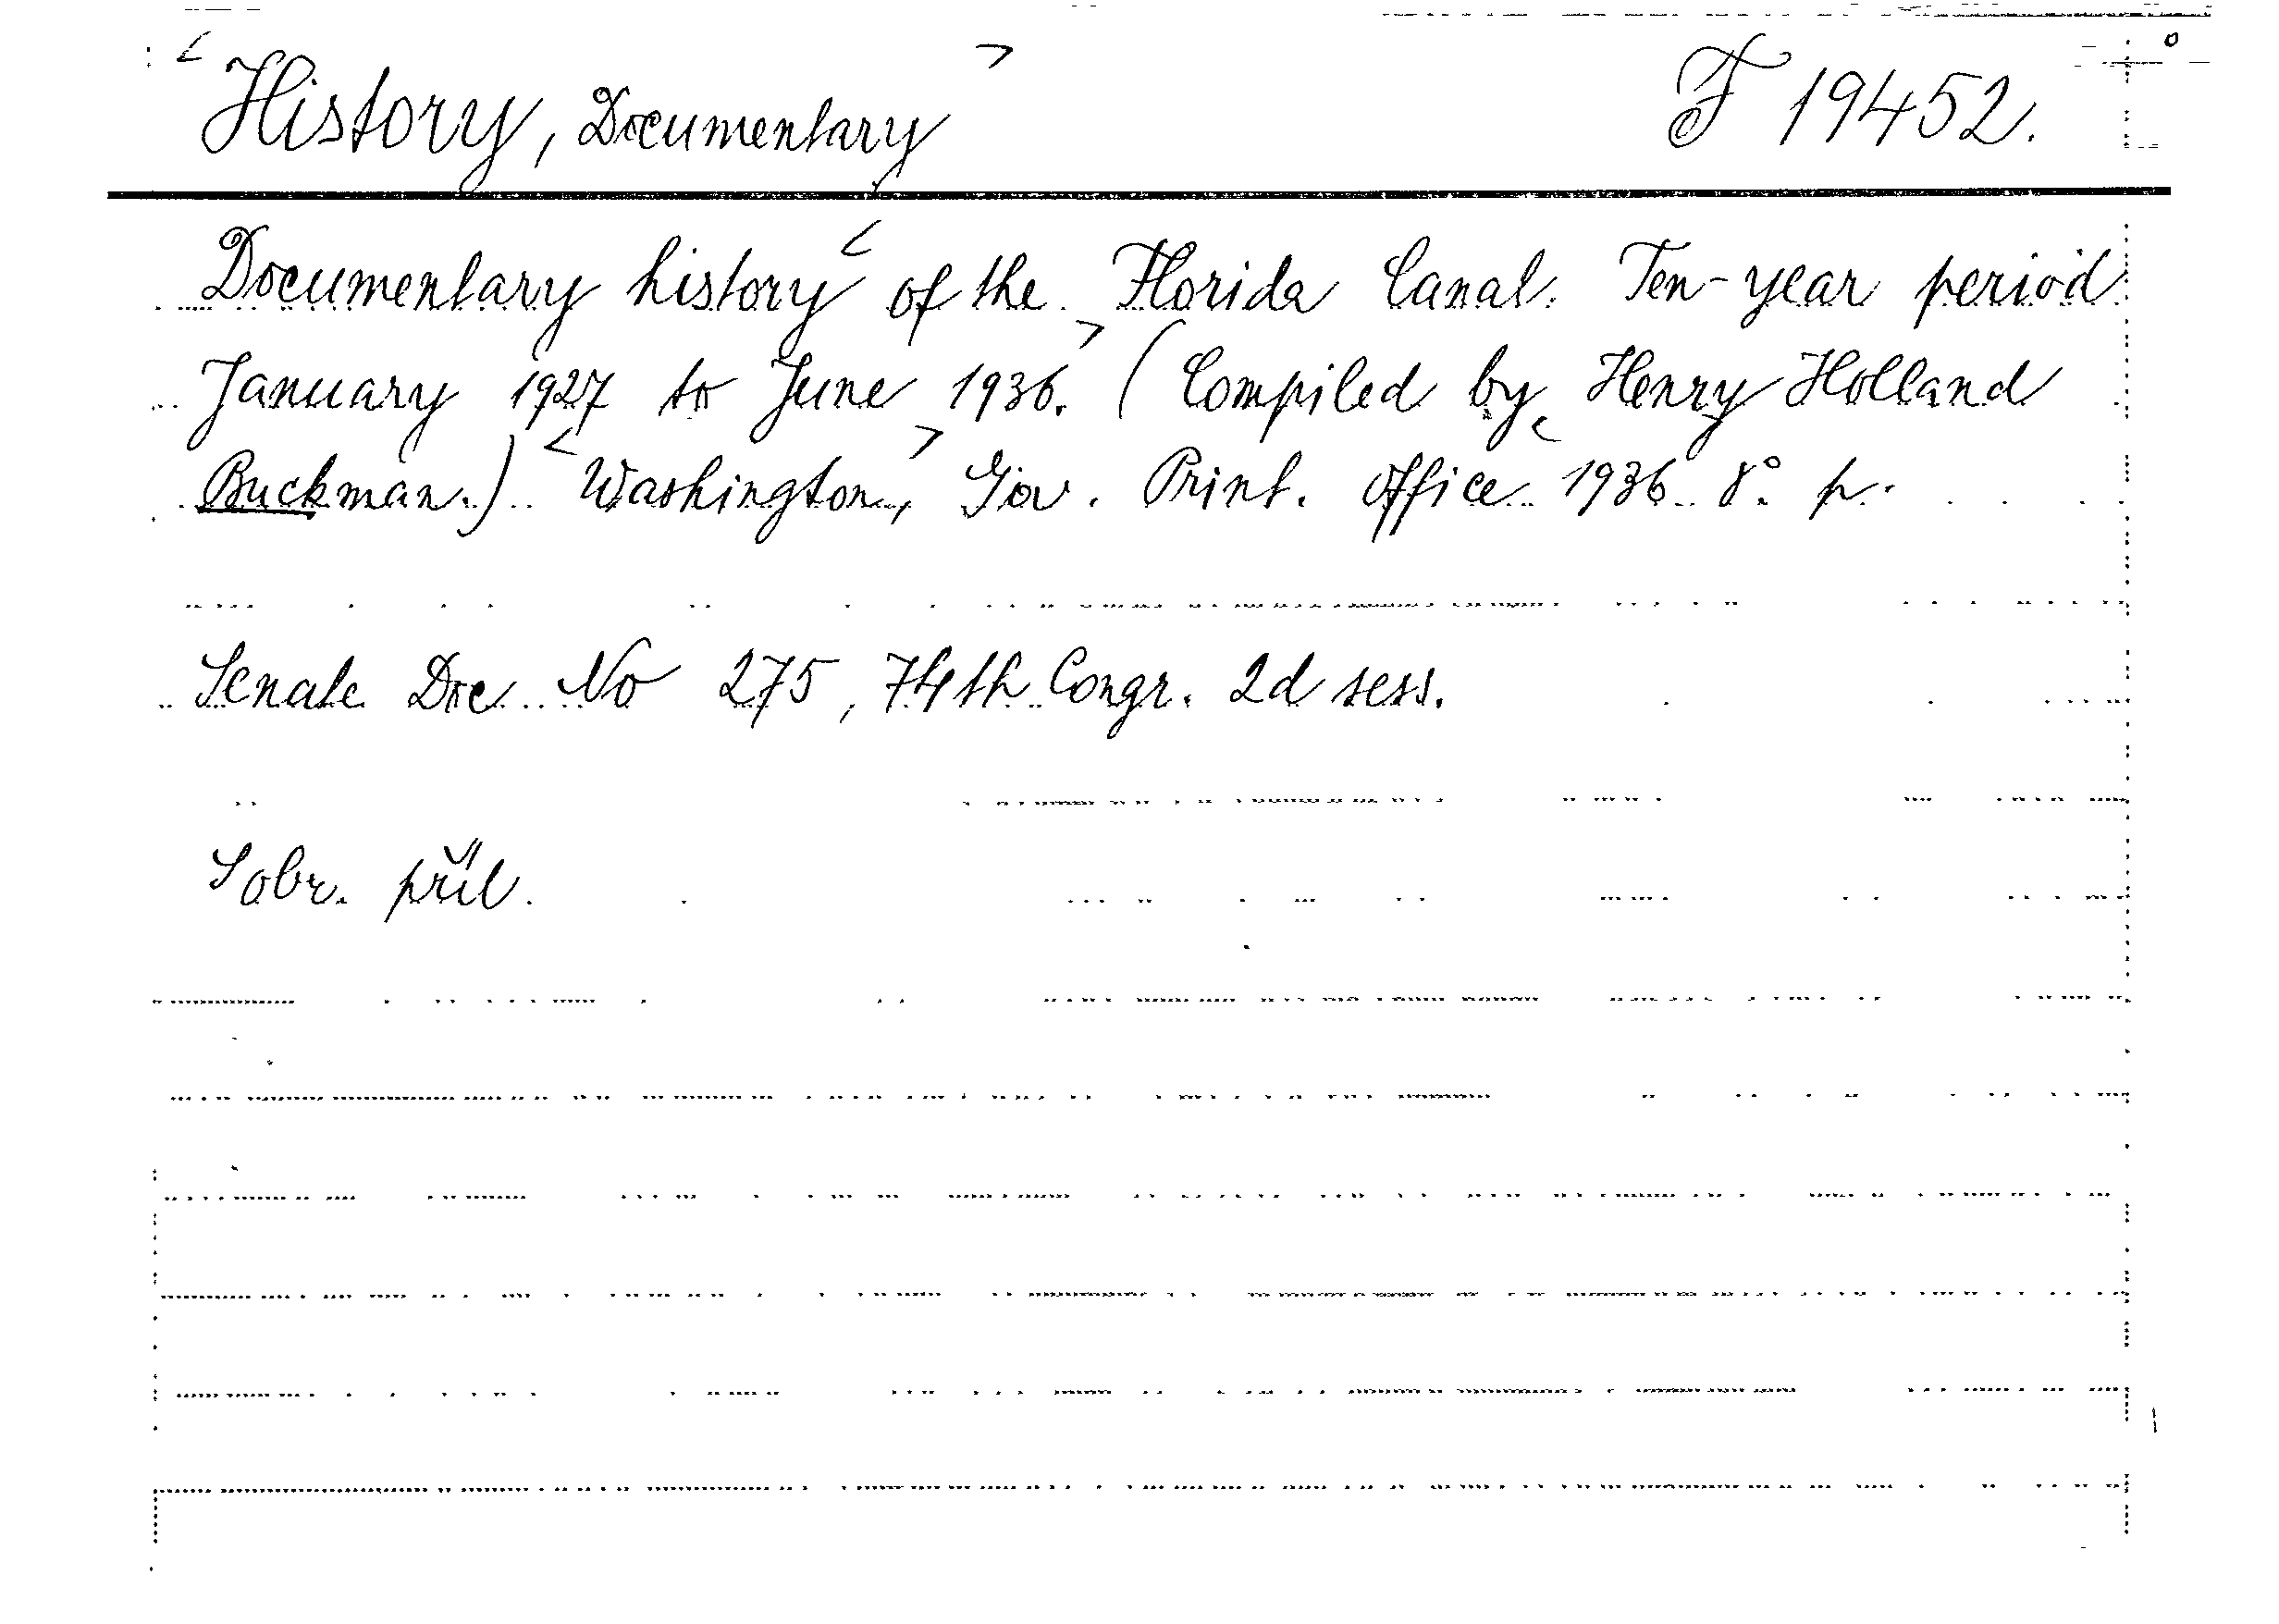 <History, Documentary> F 19452.
Documentary history< of the Florida Canal. Ten-year period
January 1927 to June 1936.> (Compiled by Henry Holland
Buckman.) <Washington,> Gov. Print. Office 1936 8° p.
Senate Doc No 275, 74th Congr. 2d sess.
S obr. příl.